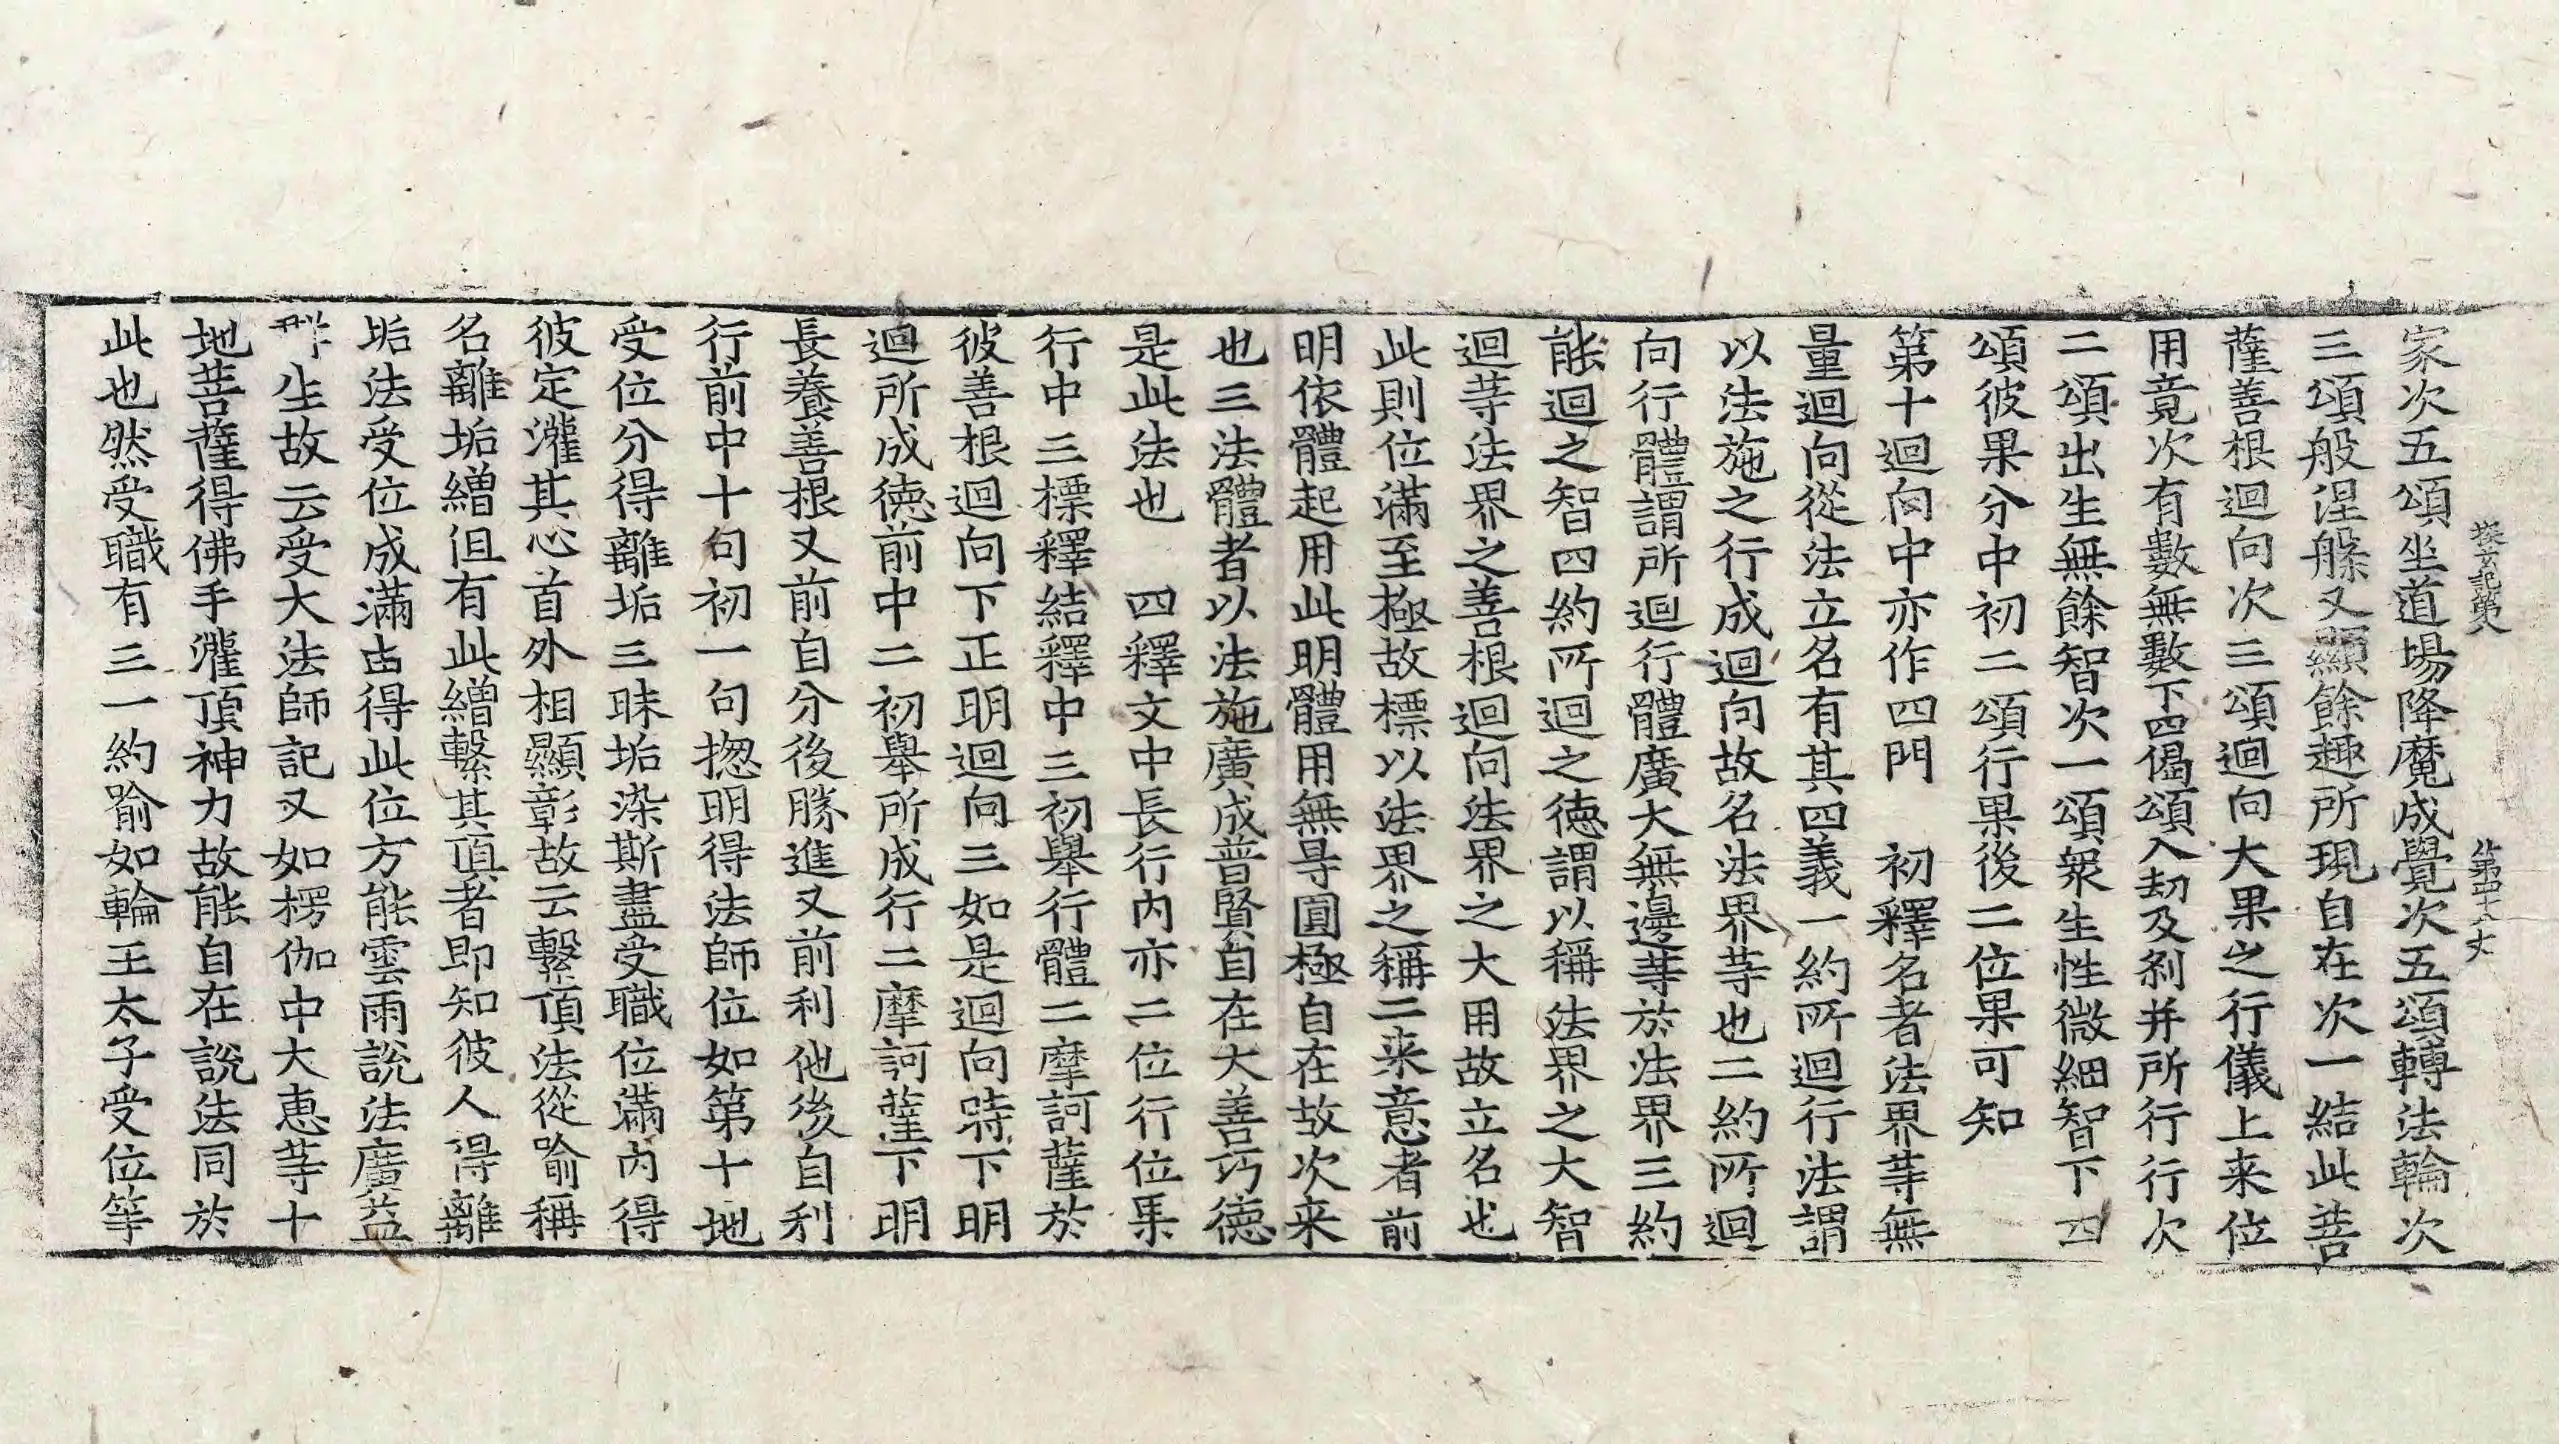 探玄記第八 第四十八丈
家次五頌坐道場降魔成覺次五頌轉法輪次
三頌般涅槃又顯餘趣所現自在次一結此菩
薩善根迴向次三頌迴向大果之行儀上来位
用竟次有數無數下四偈頌入劫及刹并所行行次
二頌出生無餘智次一頌衆生性微細智下四
頌彼果分中初二頌行果後二位果可知
第十迴向中亦作四門 初釋名者法界等無
量迴向從法立名有其四義一約所迴行法謂
以法施之行成迴向故名法界等也二約所迴
向行體謂所迴行體廣大無邊等於法界三約
能迴之智四約所迴之德謂以稱法界之大智
迴等法界之善根迴向法界之大用故立名也
此則位滿至極故標以法界之稱二来意者前
明依體起用此明體用無㝵圓極自在故次来
也三法體者以法施廣成普賢自在大善巧德
是此法也 四釋文中長行內亦二位行位果
行中三標釋結釋中三初舉行體二摩訶薩於
彼善根迴向下正明迴向三如是迴向時下明
迴所成德前中二初舉所成行二摩訶薩下明
長養善根又前自分後勝進又前利他後自利
行前中十句初一句揔明得法師位如第十地
受位分得離垢三昧垢染斯盡受職位滿內得
彼定灌其心首外相顯彰故云繫頂法從喻稱
名離垢繒但有此繒繫其頂者即知彼人得離
垢法受位成滿由得此位方能雲雨說法廣益
群生故云受大法師記又如楞伽中大惠等十
地菩薩得佛手灌頂神力故能自在說法同於
此也然受職有三一約喻如輪王太子受位等